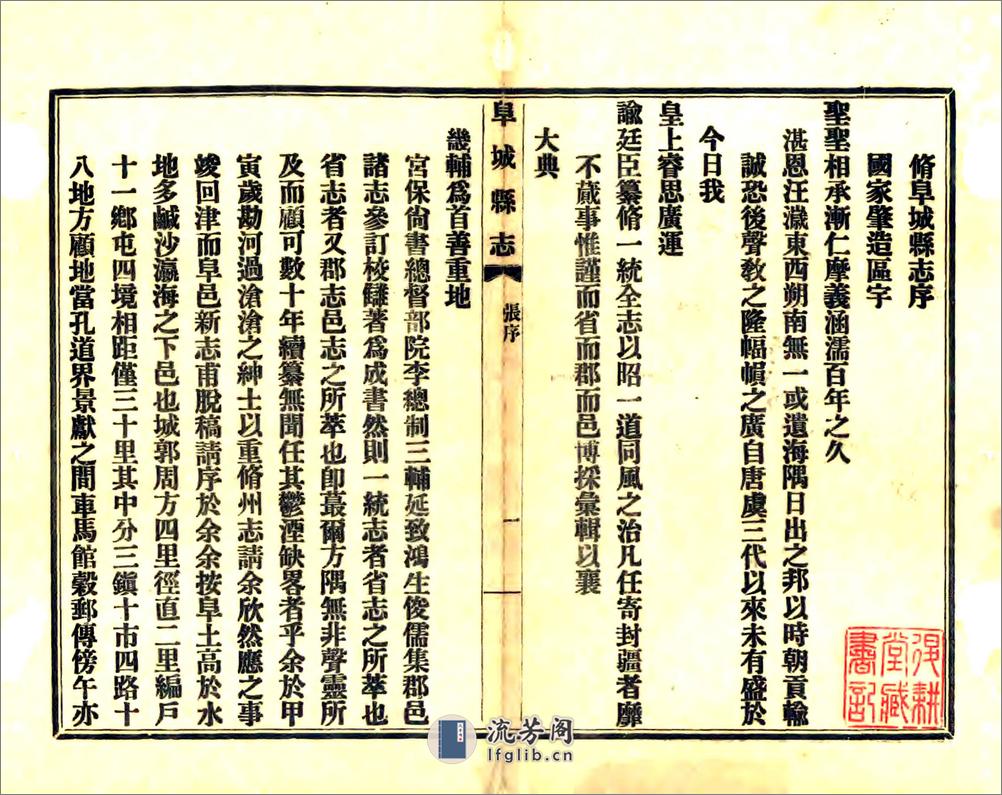 脩阜城縣志序
國家肇造區宇
聖聖相承漸仁摩義涵濡百年之久
湛恩汪濊東西朔南無一或遺海隅日出之邦以時朝貢輸
誠恐後聲敎之隆幅𢄙之廣自唐虞三代以來未有盛於
今日我
皇上睿思廣運
諭廷臣纂脩一統全志以昭一道同風之治凡任寄封疆者靡
不蕆事惟謹而省而郡而邑博採彙輯以襄
大典
阜城縣志
張序
一
畿輔爲首善重地
宮保尙書總督部院李總制三輔延致鴻生俊儒集郡邑
諸志參訂校讎著爲成書然則一統志者省志之所萃也
省志者又郡志邑志之所萃也卽蕞爾方隅無非聲靈所
及而顧可數十年續纂無聞任其鬱湮缺畧者乎余於甲
寅歲勘河過滄滄之紳士以重脩州志請余欣然應之事
竣回津而阜邑新志甫脫稿請序於余余按阜土高於水
地多鹹沙瀛海之下邑也城郭周方四里徑直二里編戶
十一鄕屯四境相距僅三十里其中分三鎭十市四路十
八地方顧地當孔道界景獻之間車馬館穀郵傳傍午亦
後耕堂臧書記
流芳阁
lfglib.cn